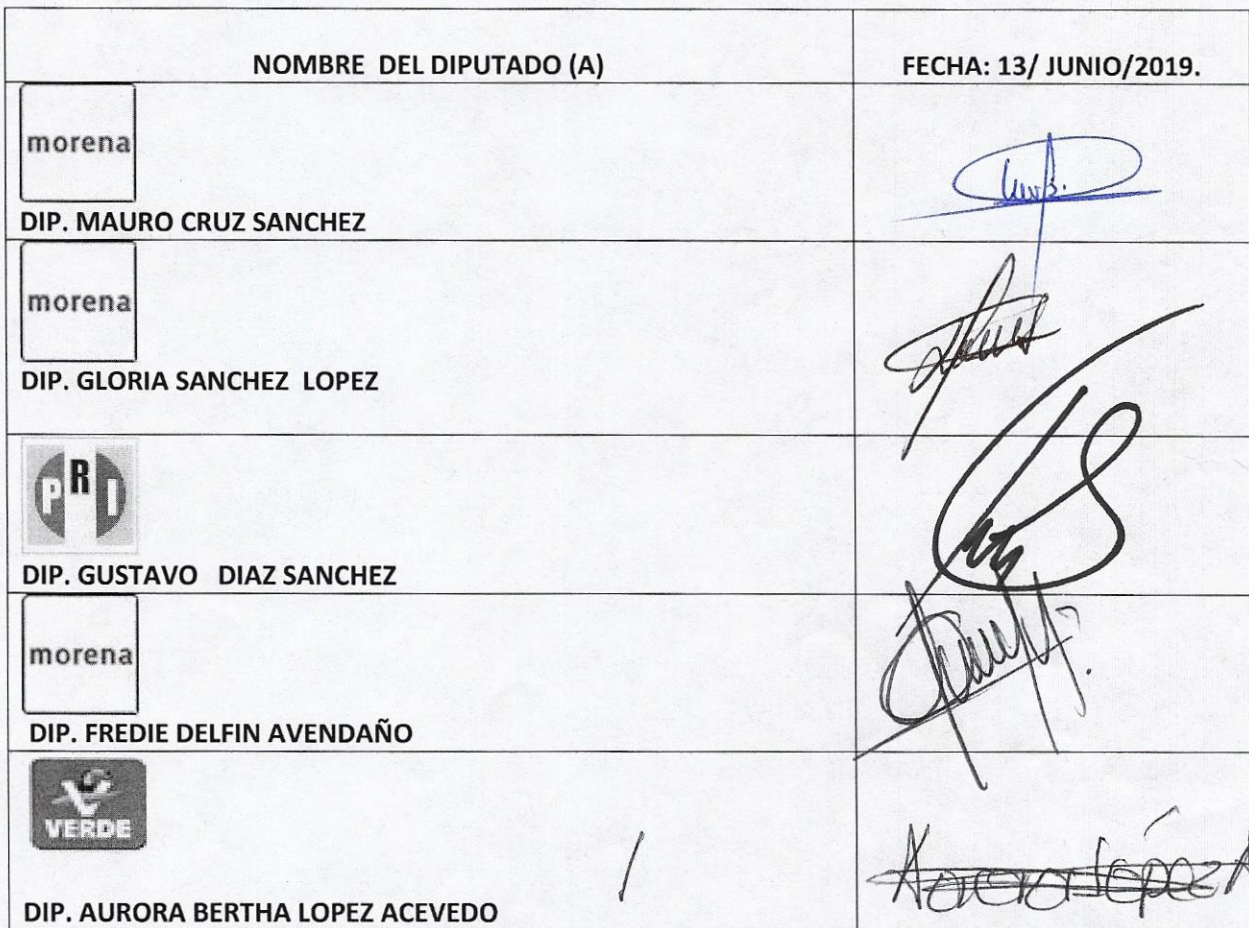 NOMBRE DEL DIPUTADO (A)
FECHA: 13/ JUNIO/2019.
morena
DIP. MAURO CRUZ SANCHEZ
morena
DIP. GLORIA SANCHEZ LOPEZ
PRI
DIP. GUSTAVO DIAZ SANCHEZ
morena
DIP. FREDIE DELFIN AVENDAÑO
VERDE
DIP. AURORA BERTHA LOPEZ ACEVEDO
Aurora López A